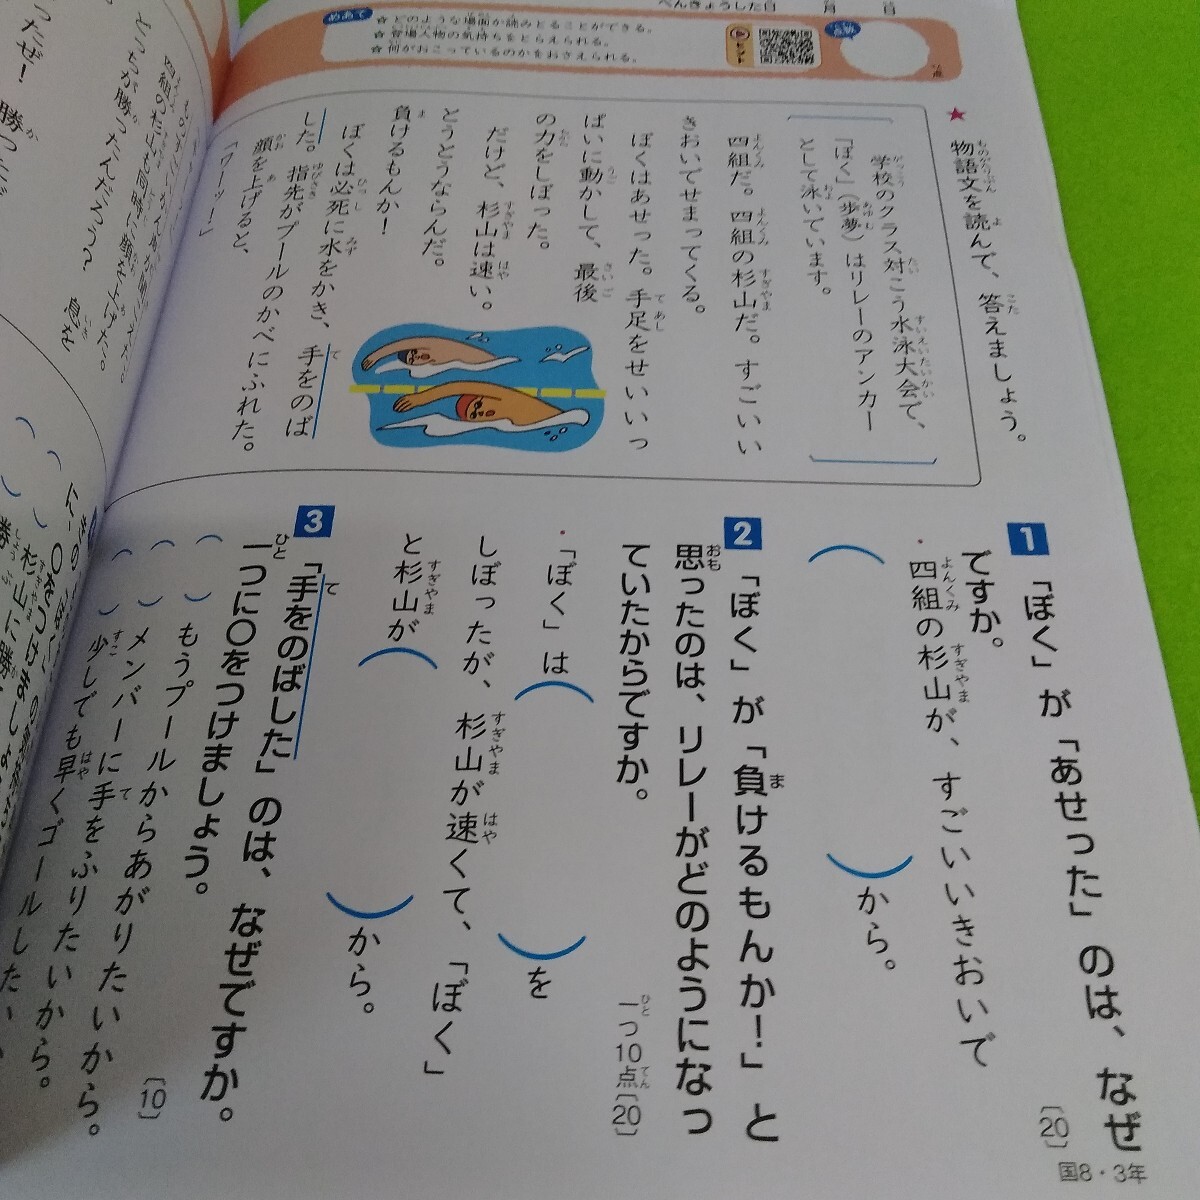 べんきょうした日　月　日
めあて
☆どのような場面か読みとることができる。
☆登場人物の気持ちをとらえられる。
☆何がおこっているのかをおさえられる。
ヒント
★物語文を読んで、答えましょう。
学校のクラス対こう水泳大会で、
「ぼく」（歩夢）はリレーのアンカー
として泳いでいます。
四組だ。四組の杉山だ。すごいい
きおいでせまってくる。
ぼくはあせった。手足をせいいっ
ぱいに動かして、最後
の力をしぼった。
だけど、杉山は速い。
とうとうならんだ。
負けるもんか！
ぼくは必死に水をかき、手をのば
した。指先がプールのかべにふれた。
顔を上げると、
「ワーッ！」
どっちが勝ったんだろう？　息を
1 「ぼく」が「あせった」のは、なぜ
ですか。
[20]
四組の杉山が、すごいいきおいで
（　）から。
2 「ぼく」が「負けるもんか！」と
思ったのは、リレーがどのようになっ
ていたからですか。
一つ10点[20]
「ぼく」は（　）を
しぼったが、杉山が速くて、「ぼく」
と杉山が（　）から。
3 「手をのばした」のは、なぜですか。
一つに○をつけましょう。
[10]
（　）もうプールからあがりたいから。
（　）メンバーに手をふりたいから。
（　）少しでも早くゴールしたい
国8・3年